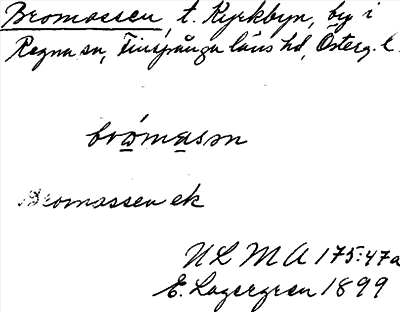 Bromossen, t. Kyrkbyn, by i
Regna sn, Finspånga läns hd, Österg. l.
brómasm
Bromossen ek
ULMA 175:47a
E. Lagergren 1899